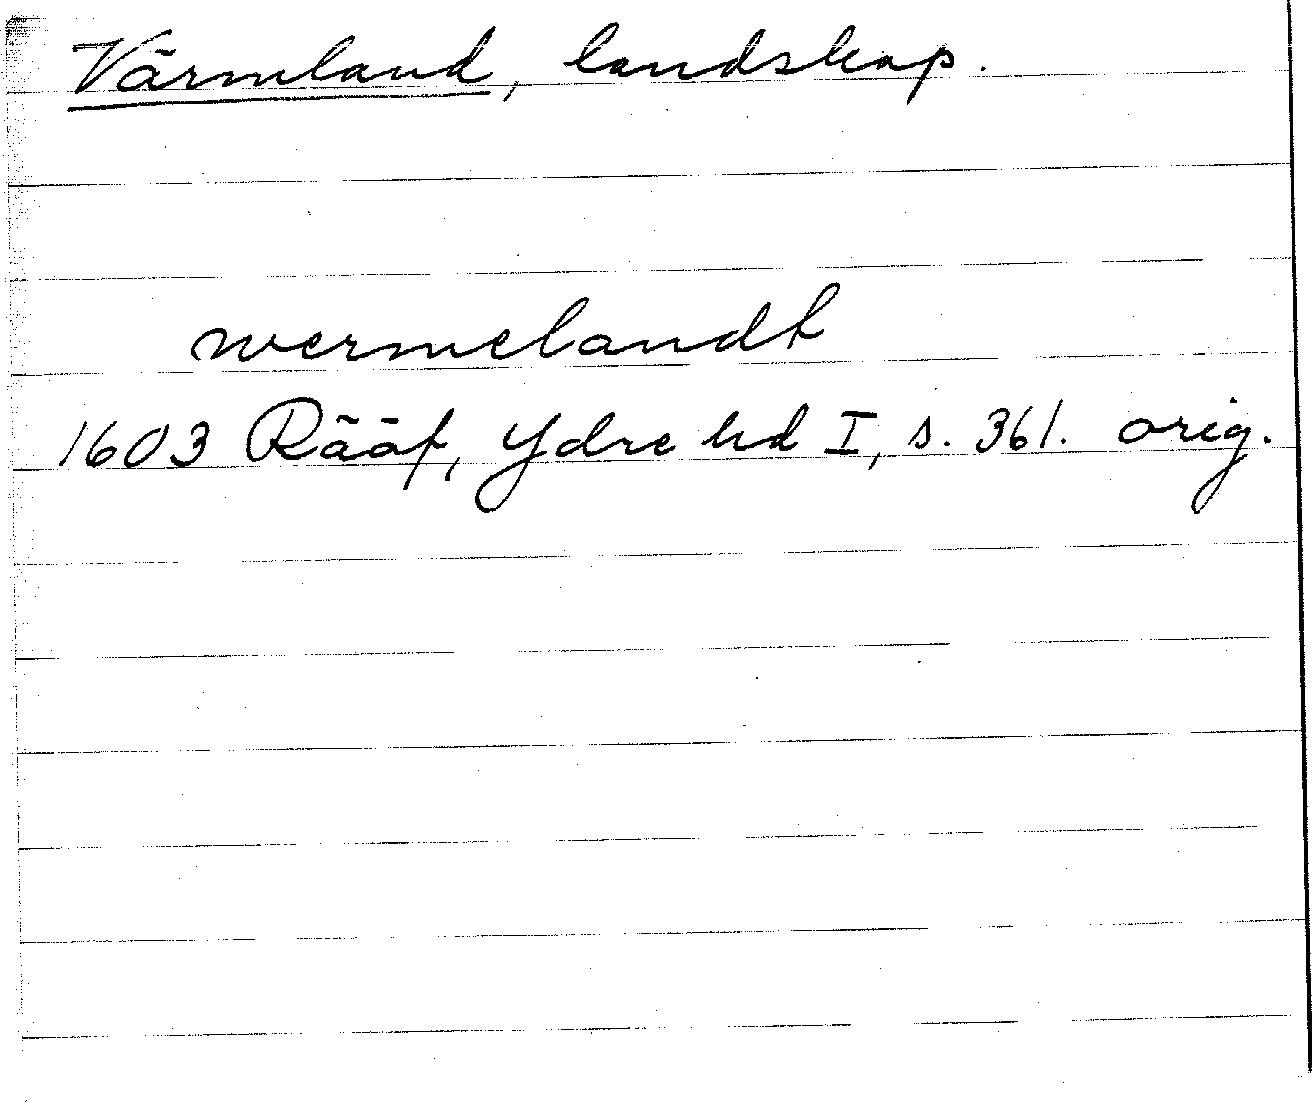 Värmland, landskap.
wermelandt
1603 Rääf, Ydre hd I, s. 361. orig.